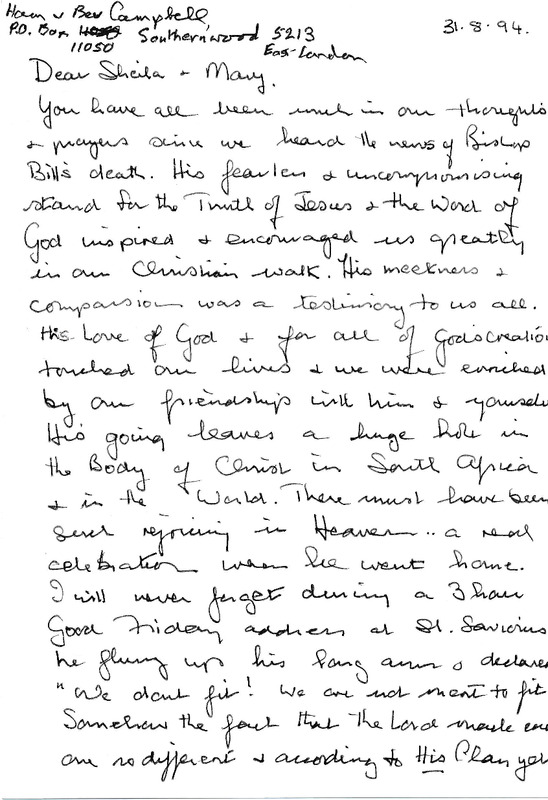 Ham & Bev Campbell,
P.O. Box
11050 Southernwood 5213
East-London
31.8.94.
Dear Sheila & Mary.
You have all been much in our thoughts
& prayers since we heard the news of Bishop
Bill's death. His fearless & uncompromising
stand for the Truth of Jesus & the Word of
God inspired & encouraged us greatly
in our Christian walk. His meekness &
compassion was a testimony to us all.
His Love of God & for all of God's creation
touched our lives & we were enriched
by our friendship with him & yourselv
His going leaves a huge hole in
the Body of Christ in South Africa
& in the World. There must have been
such rejoicing in Heaven.. a real
celebration when he went home.
I will never forget during a 3 hour
Good Friday address at St. Saviours
he flung up his long arms & declared
"We dont fit! We are not meant to fit
Somehow the fact that the Lord made
are so different & according to His Plan yet